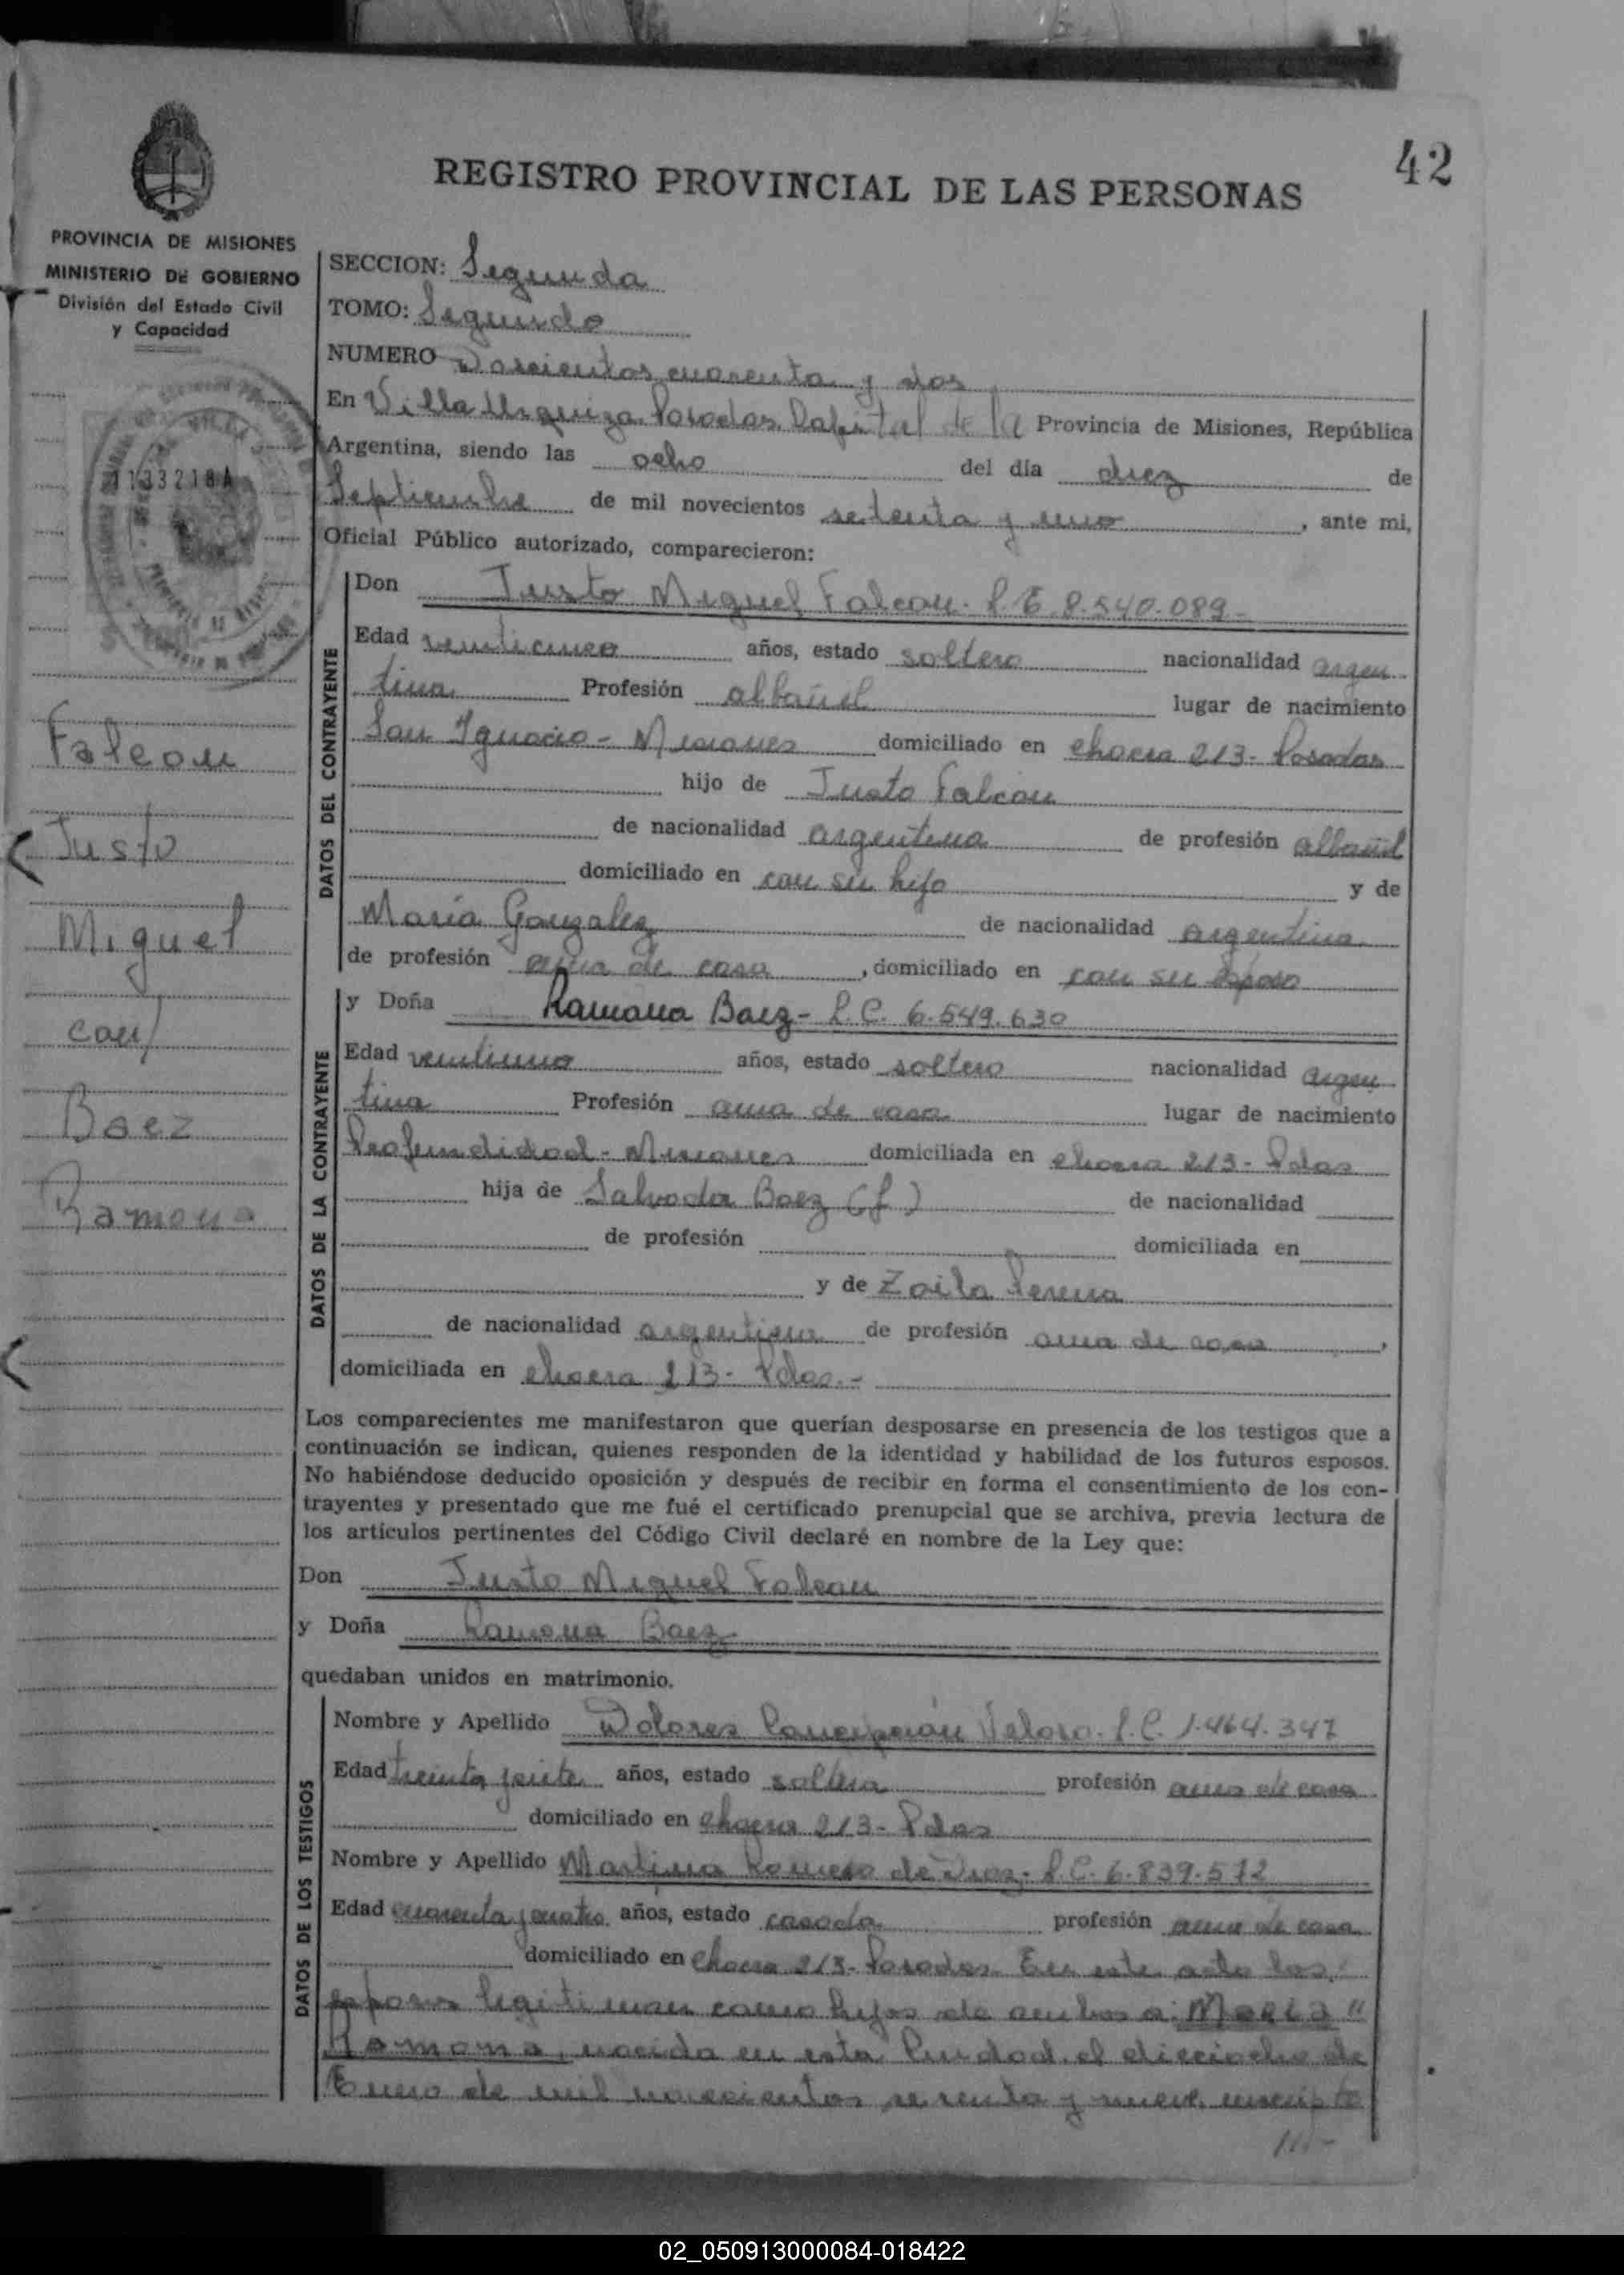 42
REGISTRO PROVINCIAL DE LAS PERSONAS
PROVINCIA DE MISIONES
MINISTERIO DE GOBIERNO
División del Estado Civil
y Capacidad
1133218A
Falcon
Justo
Miguel
con/
Baez
Ramona
SECCION: Segunda
TOMO: Segundo
NUMERO Doscientos cuarenta y dos
En Villa Urquiza Posadas Capital de la Provincia de Misiones, República
Argentina, siendo las ocho del día diez de
Septiembre de mil novecientos setenta y uno, ante mi,
Oficial Público autorizado, comparecieron:
DATOS DEL CONTRAYENTE
Don Justo Miguel Falcon. L.E. 8.540.089-
Edad veinticinco años, estado soltero nacionalidad argen
tina Profesión albañil lugar de nacimiento
San Ignacio - Misiones domiciliado en chacra 213- Posadas
hijo de Justo Falcon
de nacionalidad argentina de profesión albañil
domiciliado en con su hijo y de
Maria Gonzalez de nacionalidad argentina
de profesión ama de casa, domiciliado en con su esposo
DATOS DE LA CONTRAYENTE
y Doña Ramona Baez- L.C. 6.549.630
Edad veintiuno años, estado soltero nacionalidad argen
tina Profesión ama de casa lugar de nacimiento
Profundidad - Misiones domiciliada en chacra 213- Pdas
hija de Salvador Baez (f) de nacionalidad
de profesión domiciliada en
y de Zoila Pereira
de nacionalidad argentina de profesión ama de casa,
domiciliada en chacra 213- Pdas.-
Los comparecientes me manifestaron que querían desposarse en presencia de los testigos que a
continuación se indican, quienes responden de la identidad y habilidad de los futuros esposos.
No habiéndose deducido oposición y después de recibir en forma el consentimiento de los con-
trayentes y presentado que me fué el certificado prenupcial que se archiva, previa lectura de
los artículos pertinentes del Código Civil declaré en nombre de la Ley que:
Don Justo Miguel Falcon
y Doña Ramona Baez
quedaban unidos en matrimonio.
DATOS DE LOS TESTIGOS
Nombre y Apellido Dolores Concepción Veloso. L.C. 1.464.347
Edad treinta y siete años, estado soltera profesión ama de casa
domiciliado en chacra 213- Pdas
Nombre y Apellido Martina Romero de Diaz- L.C. 6.839.572
Edad cuarenta y cuatro años, estado casada profesión ama de casa
domiciliado en chacra 213- Posadas En este acto los
esposos legitiman como hijos de ambos a: Maria "
Ramona, nacida en esta Ciudad el dieciocho de
Enero de mil novecientos sesenta y nueve inscripto
///-
02_050913000084-018422